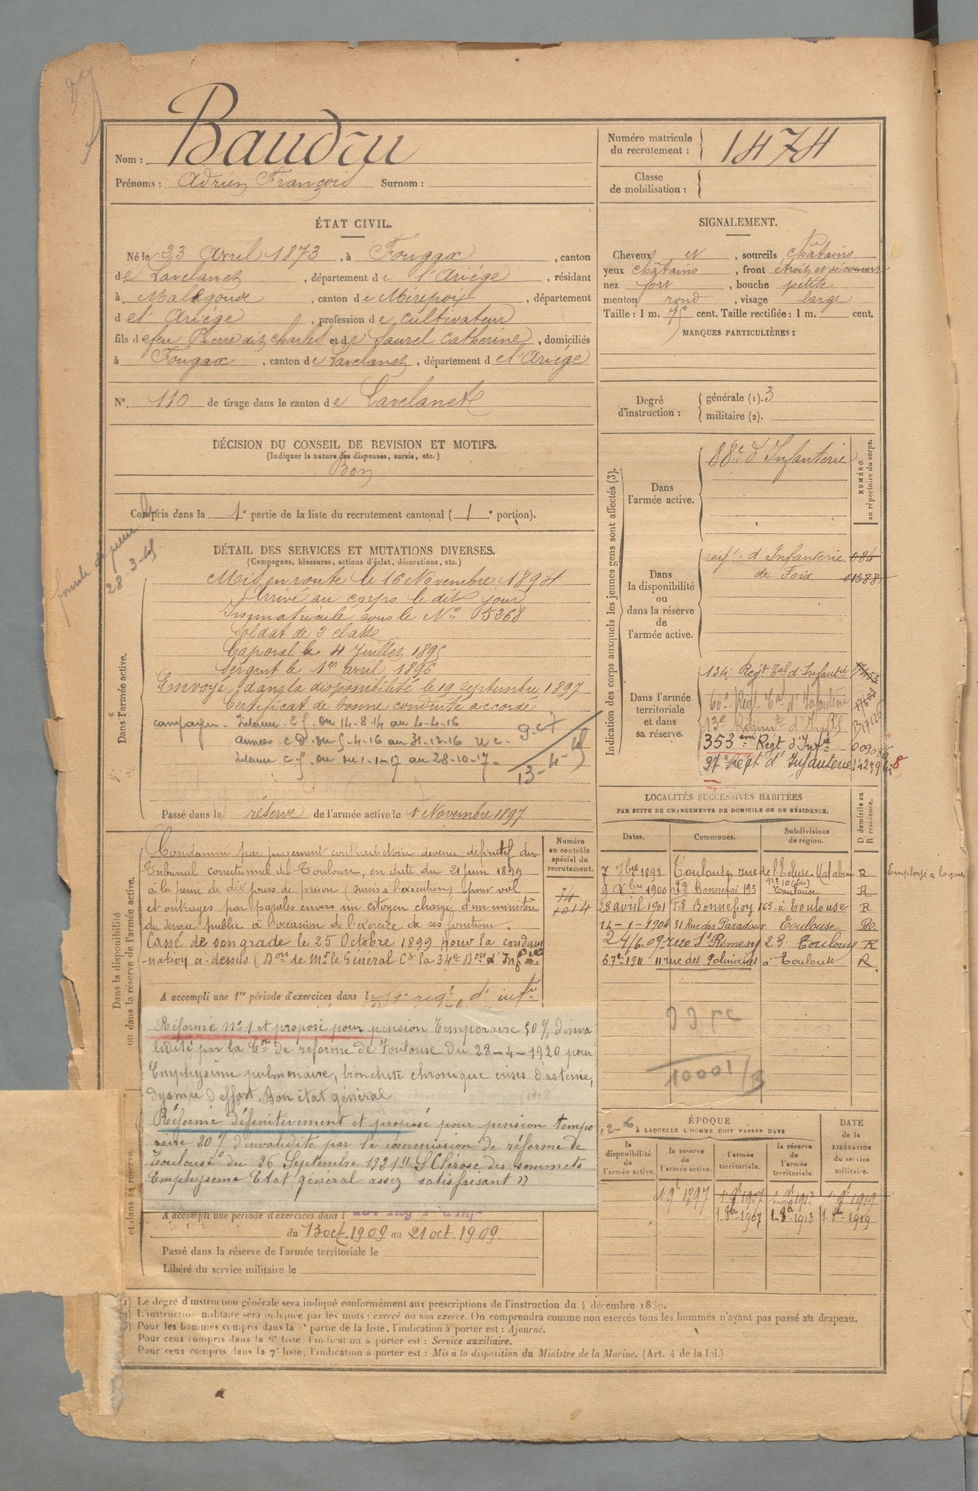 Nom : Baudru
Prénoms : Adrien François Surnom :
Numéro matricule du recrutement : 1474
Classe de mobilisation :
ÉTAT CIVIL.
Né le 23 Avril 1873, à Fougax, canton
de Lavelanet, département de l'Ariège, résidant
à Malegoude, canton de Mirepoix, département
d e l'Ariège, profession de cultivateur
fils de feu Pierre dit Charles et de Laurel Catherine, domiciliés
à Fougax, canton de Lavelanet, département de l'Ariège
N° 110 de tirage dans le canton de Lavelanet
SIGNALEMENT.
Cheveux et, sourcils châtains
yeux châtains, front étroit et découvert
nez fort, bouche petite
menton rond, visage large
Taille : 1 m. cent. Taille rectifiée : 1 m. cent.
MARQUES PARTICULIÈRES :
DÉCISION DU CONSEIL DE REVISION ET MOTIFS.
(Indiquer la nature des dispenses, sursis, etc.)
Bon
Compris dans la 1e partie de la liste du recrutement cantonal (1e portion).
Degré d'instruction : générale (1). 3
militaire (2).
DÉTAIL DES SERVICES ET MUTATIONS DIVERSES.
(Campagnes, blessures, actions d'éclat, décorations, etc.)
Dans l'armée active.
Mis en route le 16 Novembre 1894
Arrivé au corps le dit jour
Immatriculé sous le N° 5368
Soldat de 2e classe
Caporal le 4 Juillet 1895
Sergent le 1er avril 1896
Envoyé dans la disponibilité le 19 septembre 1897
Certificat de bonne conduite accordé
campagnes - Intérieur C.S. du 14-8-14 au 4-4-16
Armées C D. du 5-4-16 au 31-12-16
Intérieur C.S. du 1-1-17 au 28-10-17
Passé dans la réserve de l'armée active le 1 Novembre 1897
Indication des corps auxquels les jeunes gens sont affectés (3).
NUMÉRO au répertoire du corps.
Dans l'armée active.
88e d'Infanterie
Dans la disponibilité ou dans la réserve de l'armée active.
regt d'Infanterie
de Foix
Dans l'armée territoriale et dans sa réserve.
134e Regt Tal d'Infanterie
353ème Regt d'Infie
37e Regt d'Infanterie
LOCALITÉS SUCCESSIVES HABITÉES
PAR SUITE DE CHANGEMENTS DE DOMICILE OU DE RÉSIDENCE.
Dates. Communes. Subdivisions de région. D domicile ou R résidence.
7 7bre 1898 Toulouse, rue de l'Ecluse R
28 avril 1901 F.g Bonnefoy 165 à Toulouse R
14-1-1904 31 Rue des Paradoux Toulouse
24/6.09 rue St Remesy 23 Toulouse R
1911 11 rue des Polinaires à Toulouse R.
Dans la disponibilité ou dans la réserve de l'armée active.
Numéro au contrôle spécial du recrutement.
Condamné par jugement contradictoire devenu définitif du
Tribunal correctionnel de Toulouse, en date du 21 juin 1899
à la peine de dix jours de prison (sursis à l'exécution) pour vol
et outrages par paroles envers un citoyen chargé d'un ministère
de service public à l'occasion de l'exercice de ses fonctions.
Cassé de son grade le 25 Octobre 1899 pour la condam
nation ci-dessus (Don de Mr le Général Ct la 34e Don d'Infie)
A accompli une 1re période d'exercices dans le regt d'infie
Réformé n° 1 et proposé pour pension temporaire 50 % d'inva
lidité par la Con de réforme de Toulouse du 28-4-1920 pour
Emphysème pulmonaire, bronchite chronique crises d'astenie,
dyspnée d'effort. Bon état général
Réformé définitivement et proposé pour pension tempo
raire 20 % d'invalidité par la commission de réforme de
Toulouse du 26 Septembre 1921 " Sclérose des sommets
Emphysème Etat général assez satisfaisant "
A accompli une période d'exercices dans l
du 13 oct 1909 au 21 oct. 1909.
Passé dans la réserve de l'armée territoriale le
Libéré du service militaire le
10001/3
ÉPOQUE
À LAQUELLE L'HOMME DOIT PASSER DANS
la disponibilité de l'armée active. la réserve de l'armée active. l'armée territoriale. la réserve de l'armée territoriale. DATE de la LIBÉRATION du service militaire.
(1) Le degré d'instruction générale sera indiqué conformément aux prescriptions de l'instruction du 4 décembre 1889.
(2) L'instruction militaire sera indiquée par les mots : exercé ou non exercé. On comprendra comme non exercés tous les hommes n'ayant pas passé au drapeau.
(3) Pour les hommes compris dans la partie de la liste, l'indication à porter est : Ajourné.
Pour ceux compris dans la 6e liste, l'indication à porter est : Service auxiliaire.
Pour ceux compris dans la 7e liste, l'indication à porter est : Mis à la disposition du Ministre de la Marine. (Art. 4 de la loi.)